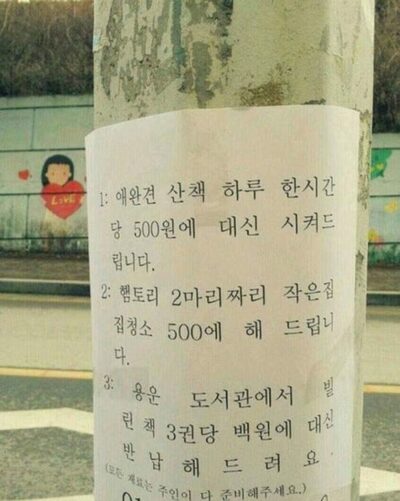 LOVE
1: 애완견 산책 하루 한시간
당 500원에 대신 시켜드
립니다.
2: 햄토리 2마리짜리 작은집
집청소 500에 해 드립니
다.
3: 용운 도서관에서 빌
린 책 3권당 백원에 대신
반납해 드려요.
(모든 재료는 주인이 다 준비해주세요.)